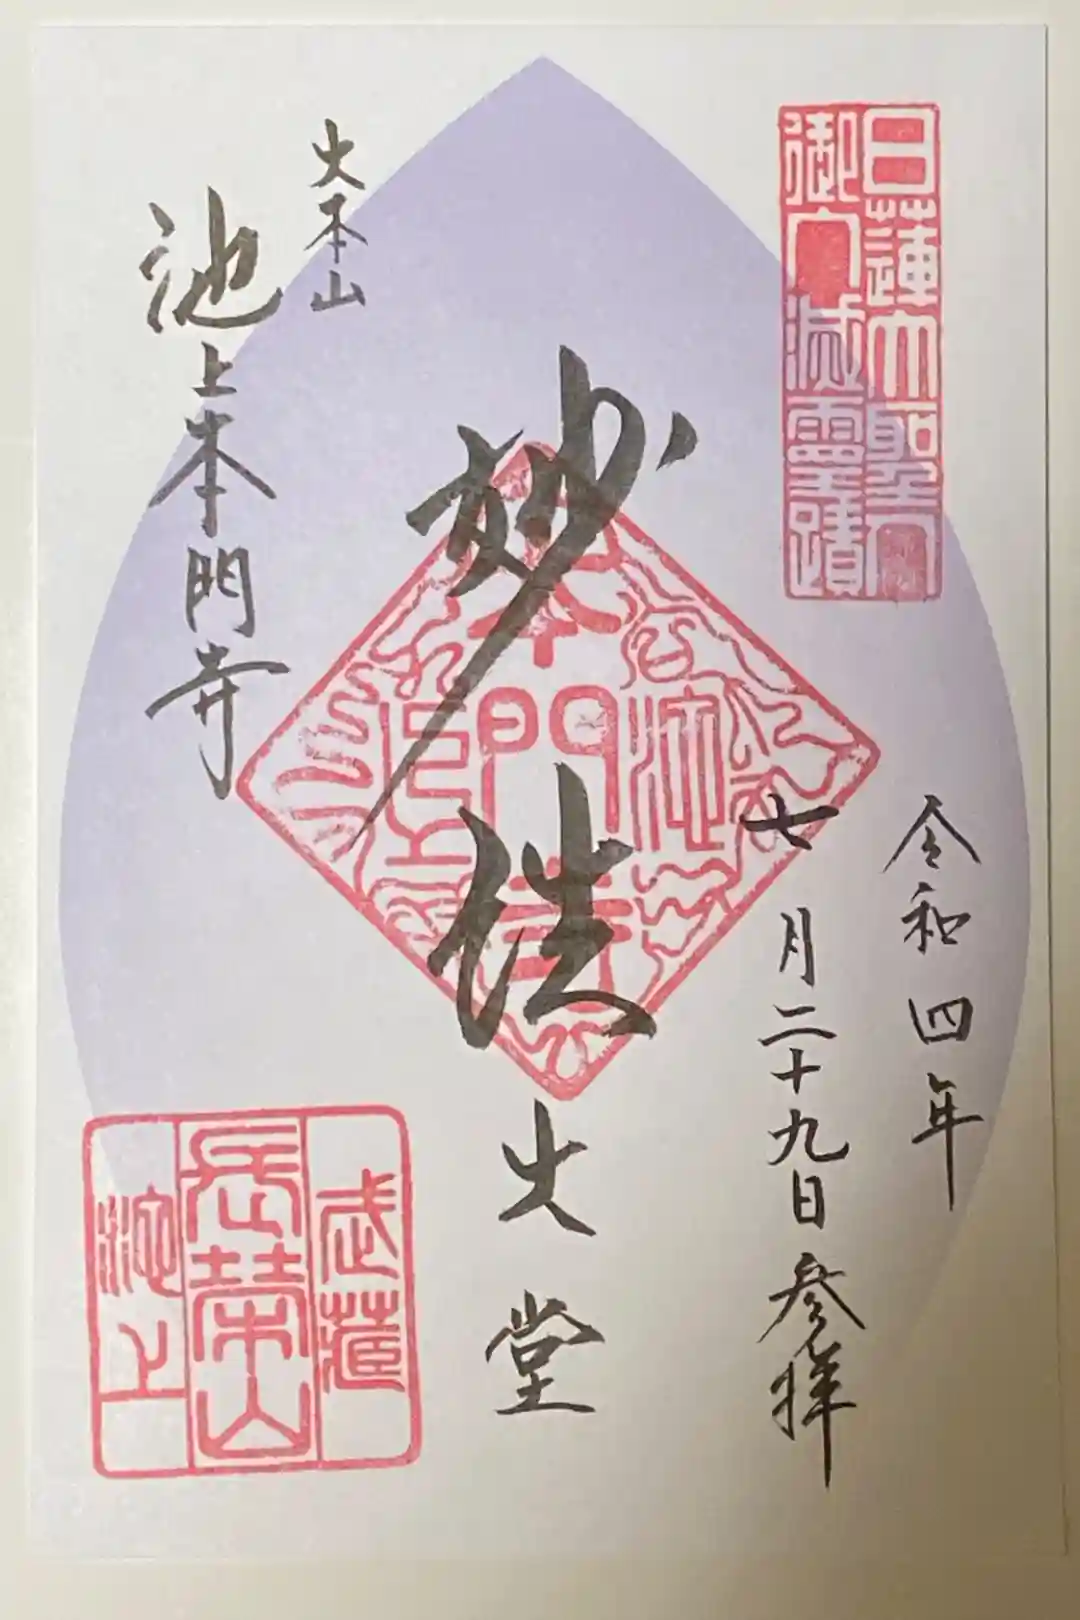 日蓮大聖人
御入滅霊蹟
令和四年
七月二十九日参拝
妙法
大堂
本門寺
池上
大本山
池上本門寺
武蔵
長栄山
池上